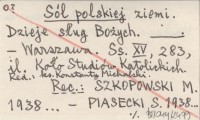 Sól polskiej ziemi.
Dzieje sług Bożych.
— Warszawa. Ss. XV, 283,
il. Koło Studiów Katolickich.
Red.: ks. Konstanty Michalski.
Rec.: SZKOPOWSKI M.
1938... — PIASECKI S. 1938...